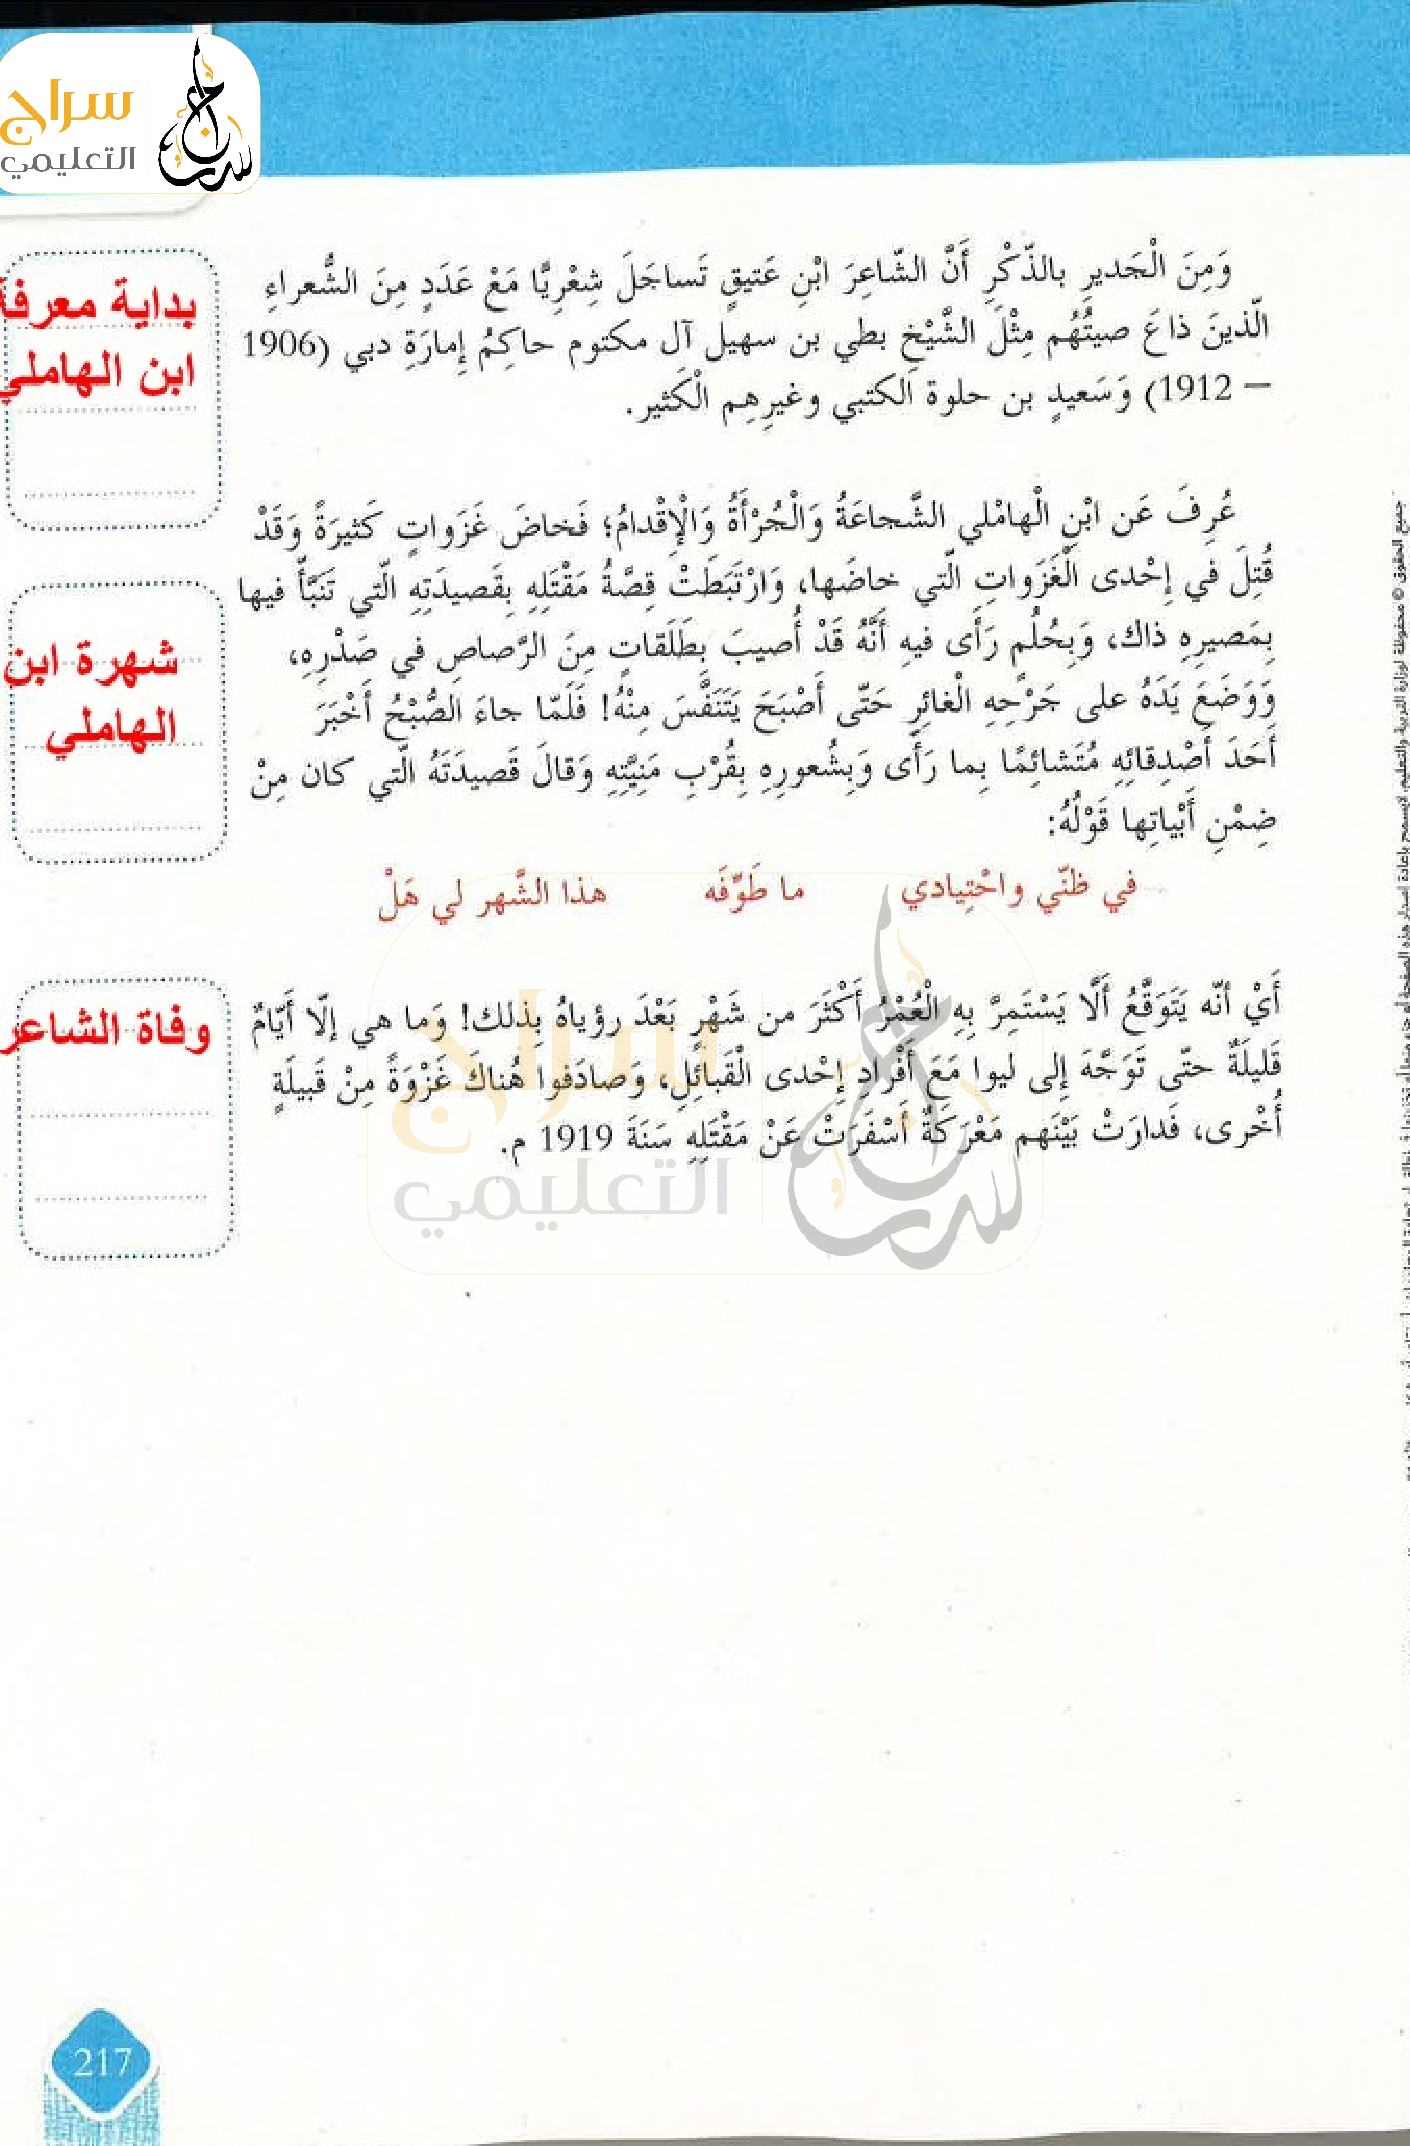 سراج
التعليمي
وَمِنَ الْجَديرِ بالذّكْرِ أَنَّ الشّاعِرَ ابْنِ عَتيقٍ تَساجَلَ شِعْرِيًّا مَعْ عَدَدٍ مِنَ الشُّعراءِ
الّذينَ ذاعَ صيتُهُم مِثْلَ الشَّيْخِ بطي بن سهيل آل مكتوم حاكِمُ إِمارَةِ دبي (1906
– 1912) وَسَعيدٍ بن حلوة الكتبي وغيرِهِم الْكَثير.
بداية معرفة
ابن الهاملي
عُرِفَ عَن ابْنِ الْهامْلي الشَّجاعَةُ وَالْجُرْأَةُ وَالْإِقْدامُ؛ فَخاضَ غَزَواتٍ كَثيرَةً وَقَدْ
قُتِلَ في إِحْدى الْغَزَواتِ الّتي خاضَها، وَارْتَبَطَتْ قِصَّةُ مَقْتَلِهِ بِقَصيدَتِهِ الّتي تَنَبَّأَ فيها
بِمَصيرِهِ ذاك، وَبِحُلُم رَأى فيه أَنَّهُ قَدْ أُصيبَ بِطَلَقاتٍ مِنَ الرَّصاصِ في صَدْرِهِ،
وَوَضَعَ يَدَهُ على جَرْحِهِ الْغائِرِ حَتّى أَصْبَحَ يَتَنَفَّسَ مِنْهُ! فَلَمّا جاءَ الصُّبْحُ أَخْبَرَ
أَحَدَ أَصْدِقائِهِ مُتَشائِمًا بِما رَأى وَبِشُعورِهِ بِقُرْبِ مَنِيَّتِهِ وَقالَ قَصيدَتَهُ الّتي كان مِنْ
ضِمْنِ أَبْياتِها قَوْلُهُ:
شهرة ابن
الهاملي
في ظنّي واحْتِيادي ما طَوِّفَه هذا الشَّهر لي هَلْ
أَيْ أنّه يَتَوَقَّعُ أَلّا يَسْتَمِرَّ بِهِ الْعُمْرُ أَكْثَرَ من شَهْرٍ بَعْدَ رؤياهُ بِذلك! وَما هي إلّا أَيّامٌ
قَليلَةٌ حتّى تَوَجَّهَ إلى ليوا مَعَ أَفْرادِ إِحْدى الْقَبائِلِ، وَصادَفوا هُناكَ غَزْوَةً مِنْ قَبيلَةٍ
أُخْرى، فَدارَتْ بَيْنَهم مَعْرَكَةٌ أَسْفَرَتْ عَنْ مَقْتَلِهِ سَنَةَ 1919 م.
وفاة الشاعر
سراج
التعليمي
217